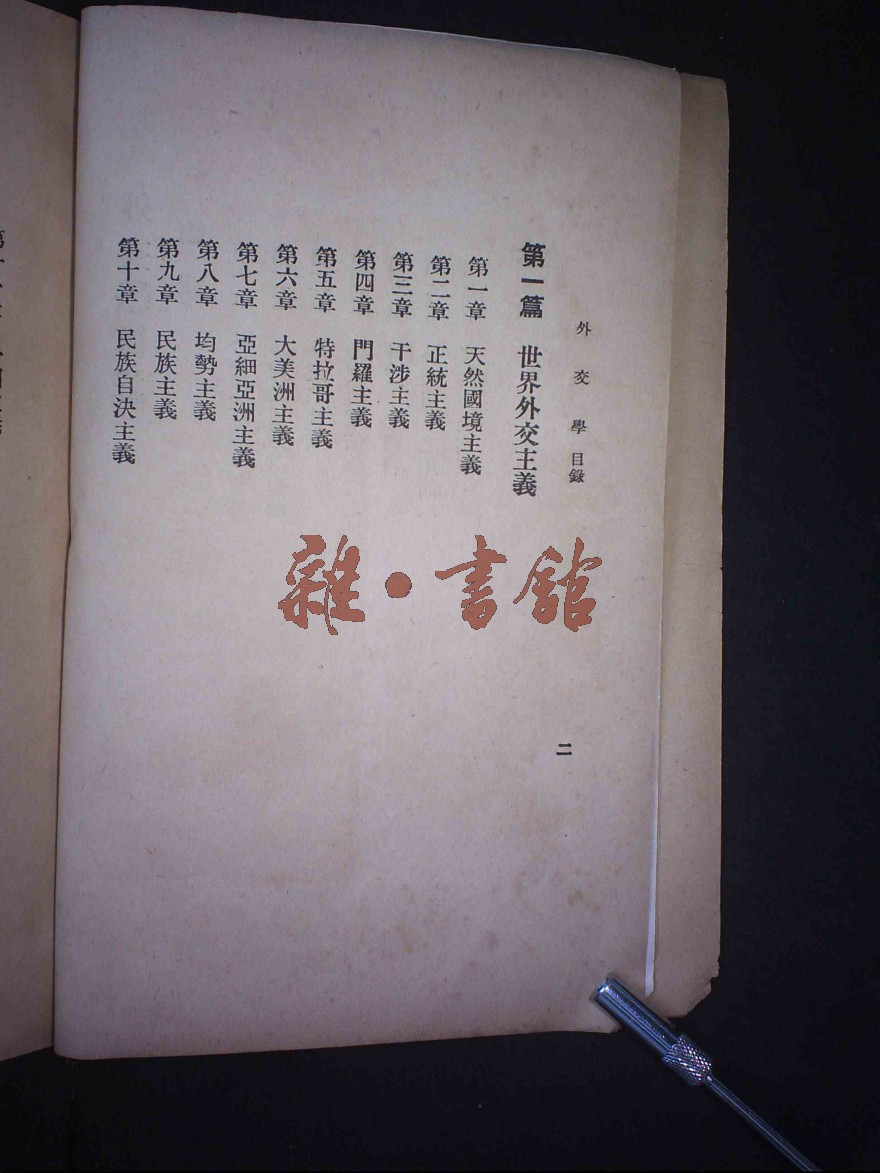 外交學 目錄
第一篇 世界外交主義
第一章 天然國境主義
第二章 正統主義
第三章 干涉主義
第四章 門羅主義
第五章 特拉哥主義
第六章 大美洲主義
第七章 亞細亞洲主義
第八章 均勢主義
第九章 民族主義
第十章 民族自決主義
二
雜·書館